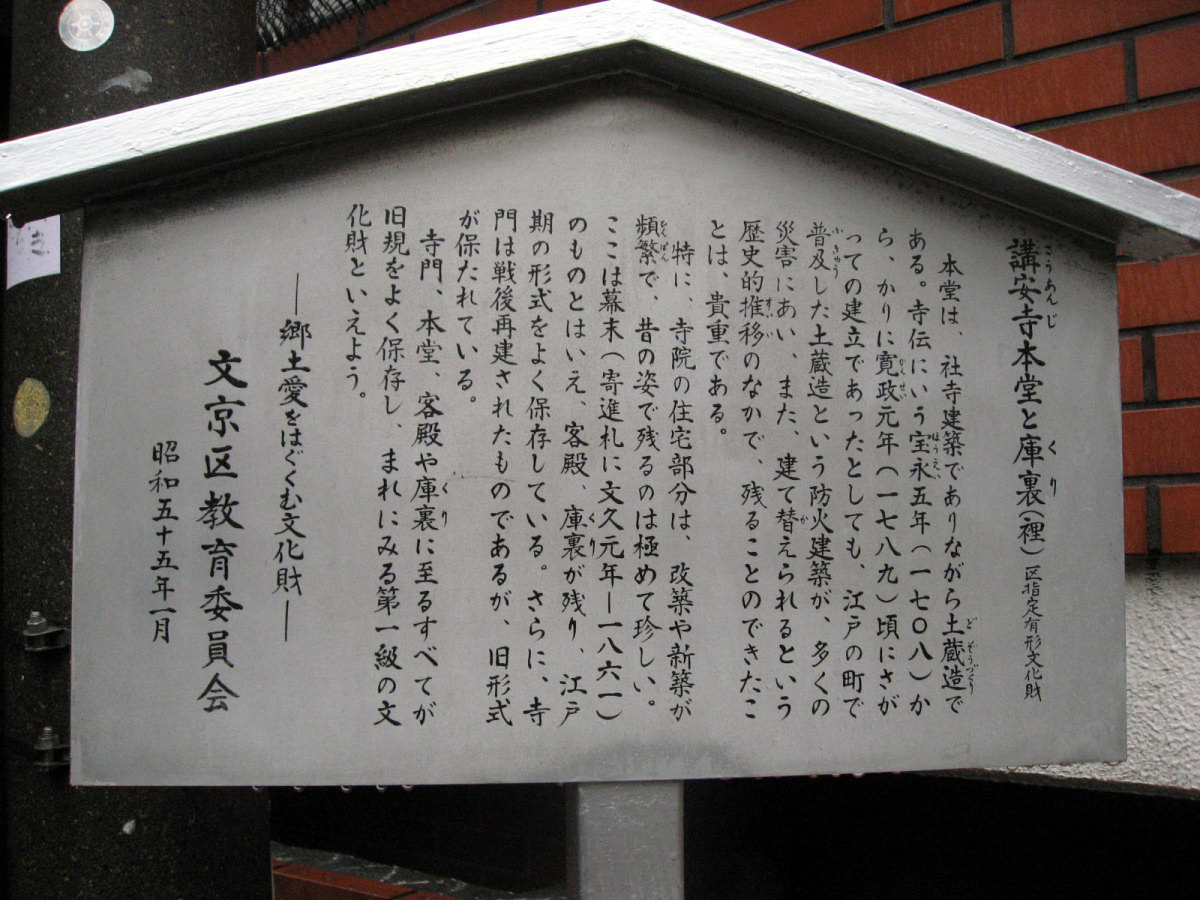 講安寺本堂と庫裏(裡)区指定有形文化財
本堂は、社寺建築でありながら土蔵造で
ある。寺伝にいう宝永五年(一七〇八)か
ら、かりに寛政元年(一七八九)頃にさが
っての建立であったとしても、江戸の町で
普及した土蔵造という防火建築が、多くの
災害にあい、また、建て替えられるという
歴史的推移のなかで、残ることのできたこ
とは、貴重である。
特に、寺院の住宅部分は、改築や新築が
頻繁で、昔の姿で残るのは極めて珍しい。
ここは幕末(寄進札に文久元年―一八六一)
のものとはいえ、客殿、庫裏が残り、江戸
期の形式をよく保存している。さらに、寺
門は戦後再建されたものであるが、旧形式
が保たれている。
寺門、本堂、客殿や庫裏に至るすべてが
旧規をよく保存し、まれにみる第一級の文
化財といえよう。
―郷土愛をはぐくむ文化財―
文京区教育委員会
昭和五十五年一月